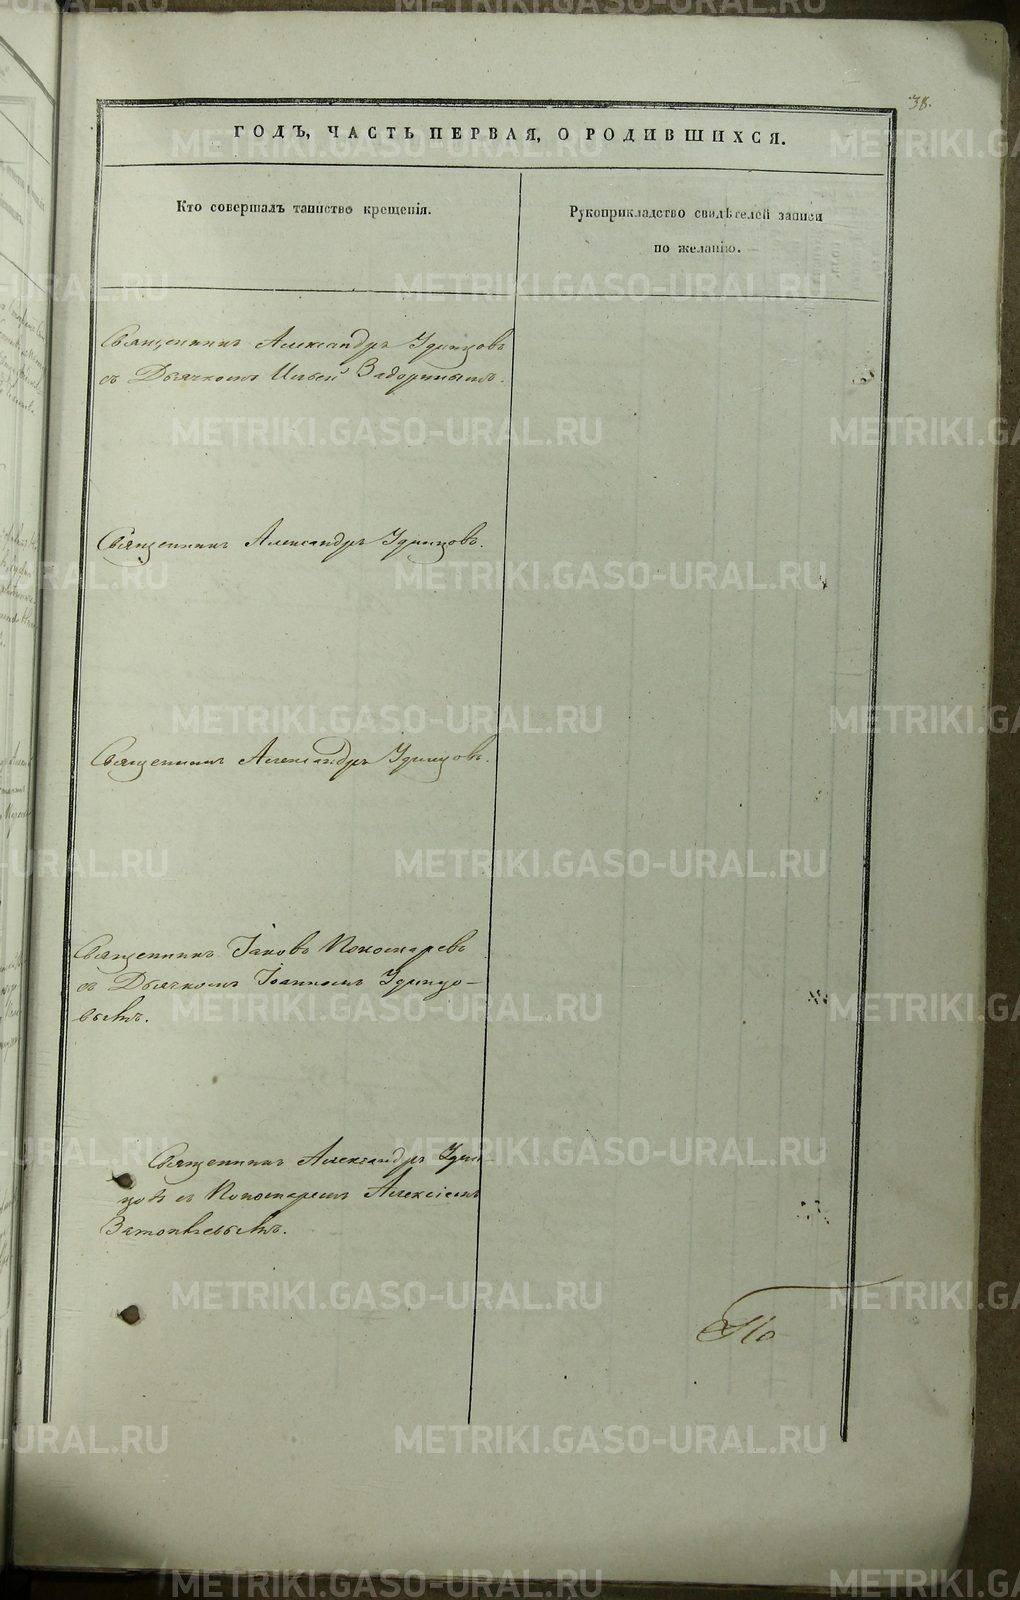 38.
ГОДЪ, ЧАСТЬ ПЕРВАЯ, О РОДИВШИХСЯ.
Кто совершалъ таинство крещенія.
Рукоприкладство свидѣтелей записи
по желанію.
Священникъ Александръ Удинцовъ
съ Дьячкомъ Ильей Задоринымъ.
Священникъ Александръ Удинцовъ.
Священникъ Александръ Удинцовъ.
Священникъ Іаковъ Пономаревъ
съ Дьячкомъ Іоанномъ Удинцо-
вымъ.
Священникъ Александръ Удин-
цовъ съ Пономаремъ Алексіемъ
По
METRIKI.GASO-URAL.RU